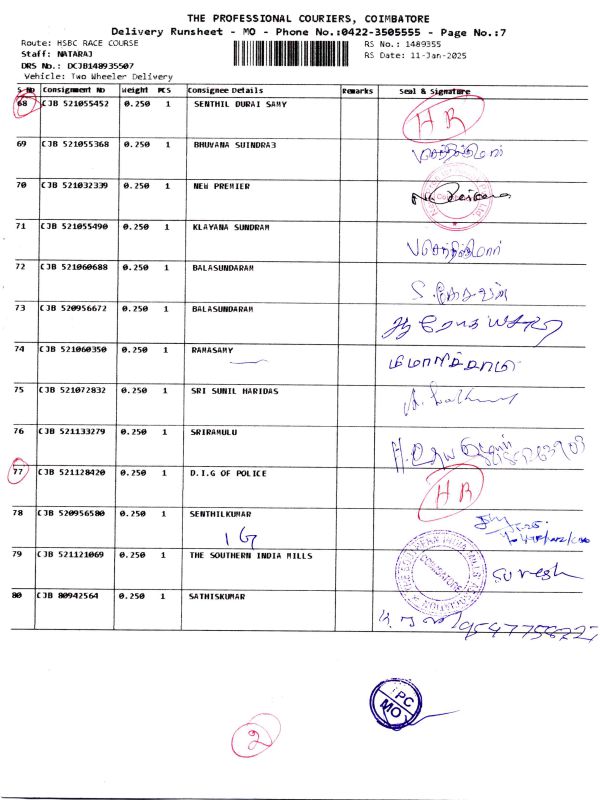 THE PROFESSIONAL COURIERS, COIMBATORE
Delivery Runsheet - MO - Phone No.:0422-3505555 - Page No.:7
Route: HSBC RACE COURSE
RS No.: 1489355
Staff: NATARAJ
RS Date: 11-Jan-2025
DRS No.: DCJB148935507
Vehicle: Two Wheeler Delivery
S No Consignment No Weight PCS Consignee Details Remarks Seal & Signature
68 CJB 521055452 0.250 1 SENTHIL DURAI SAMY HR
69 CJB 521055368 0.250 1 BHUVANA SUINDRA3
70 CJB 521032339 0.250 1 NEW PREMIER
71 CJB 521055490 0.250 1 KLAYANA SUNDRAM
72 CJB 521060688 0.250 1 BALASUNDARAM
73 CJB 520956672 0.250 1 BALASUNDARAM
74 CJB 521060350 0.250 1 RAMASAMY
75 CJB 521072832 0.250 1 SRI SUNIL HARIDAS
76 CJB 521133279 0.250 1 SRIRAMULU
77 CJB 521128420 0.250 1 D.I.G OF POLICE HR
78 CJB 520956580 0.250 1 SENTHILKUMAR
IG
79 CJB 521121069 0.250 1 THE SOUTHERN INDIA MILLS suresh
COIMBATORE
80 CJB 80942564 0.250 1 SATHISKUMAR
PC
MO
2